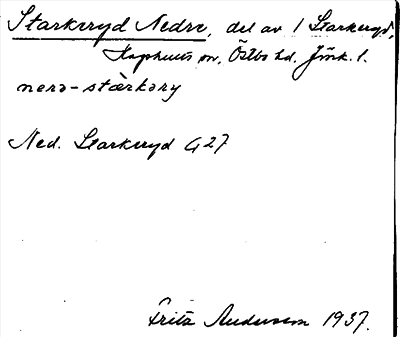 Starkeryd Nedre, del av 1 Starkeryd,
Kåphults sn, Östbo hd, Jönk. l.
nerə-stærkəry
Ned. Starkeryd G27
Fritz Anderson 1937.